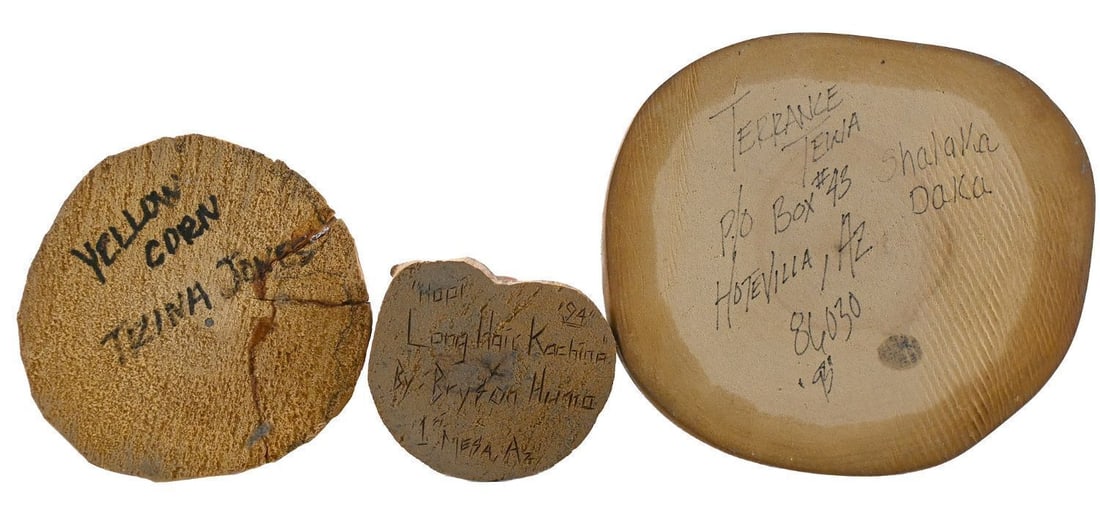 YELLOW
CORN
TRINA JONES
"Hopi
'94"
Long Hair Kachina
By: Bryson Huma
1st MESA, Az
TERRANCE
TEWA
P/O BOX #43
HOTEVILLA, AZ
86030
Shalaka
Daka